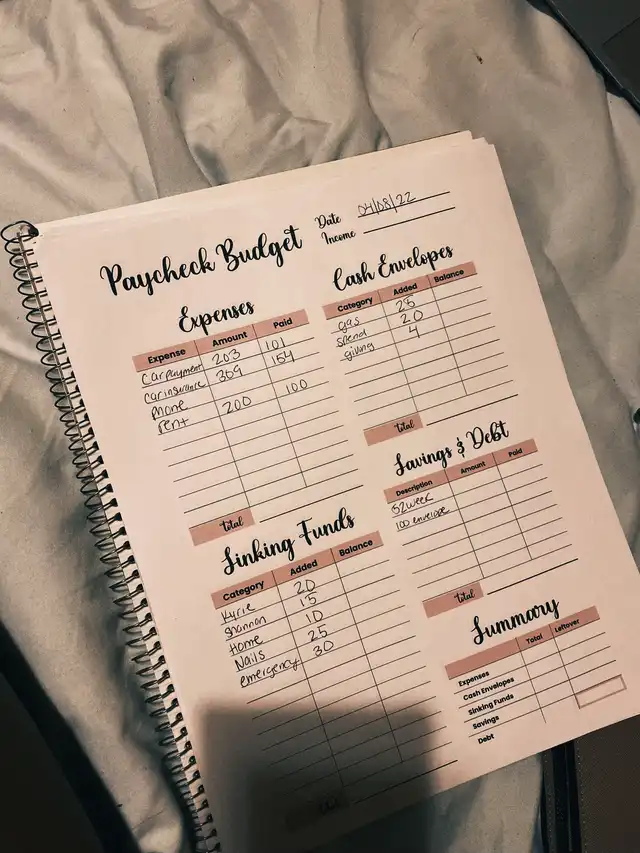 Paycheck Budget
Date 04/08/22
Income
Expenses
Expense Amount Paid
Car payment 203 101
Car insurance 309 154
Phone
rent 200 100
total
Cash Envelopes
Category Added Balance
gas 25
spend 20
giving 4
total
Savings & Debt
Description Amount Paid
52 week
100 envelope
total
Sinking Funds
Category Added Balance
Kyrie 20
Shannon 15
Home 10
Nails 25
emergency 30
Summary
Total Leftover
Expenses
Cash Envelopes
Sinking Funds
Savings
Debt